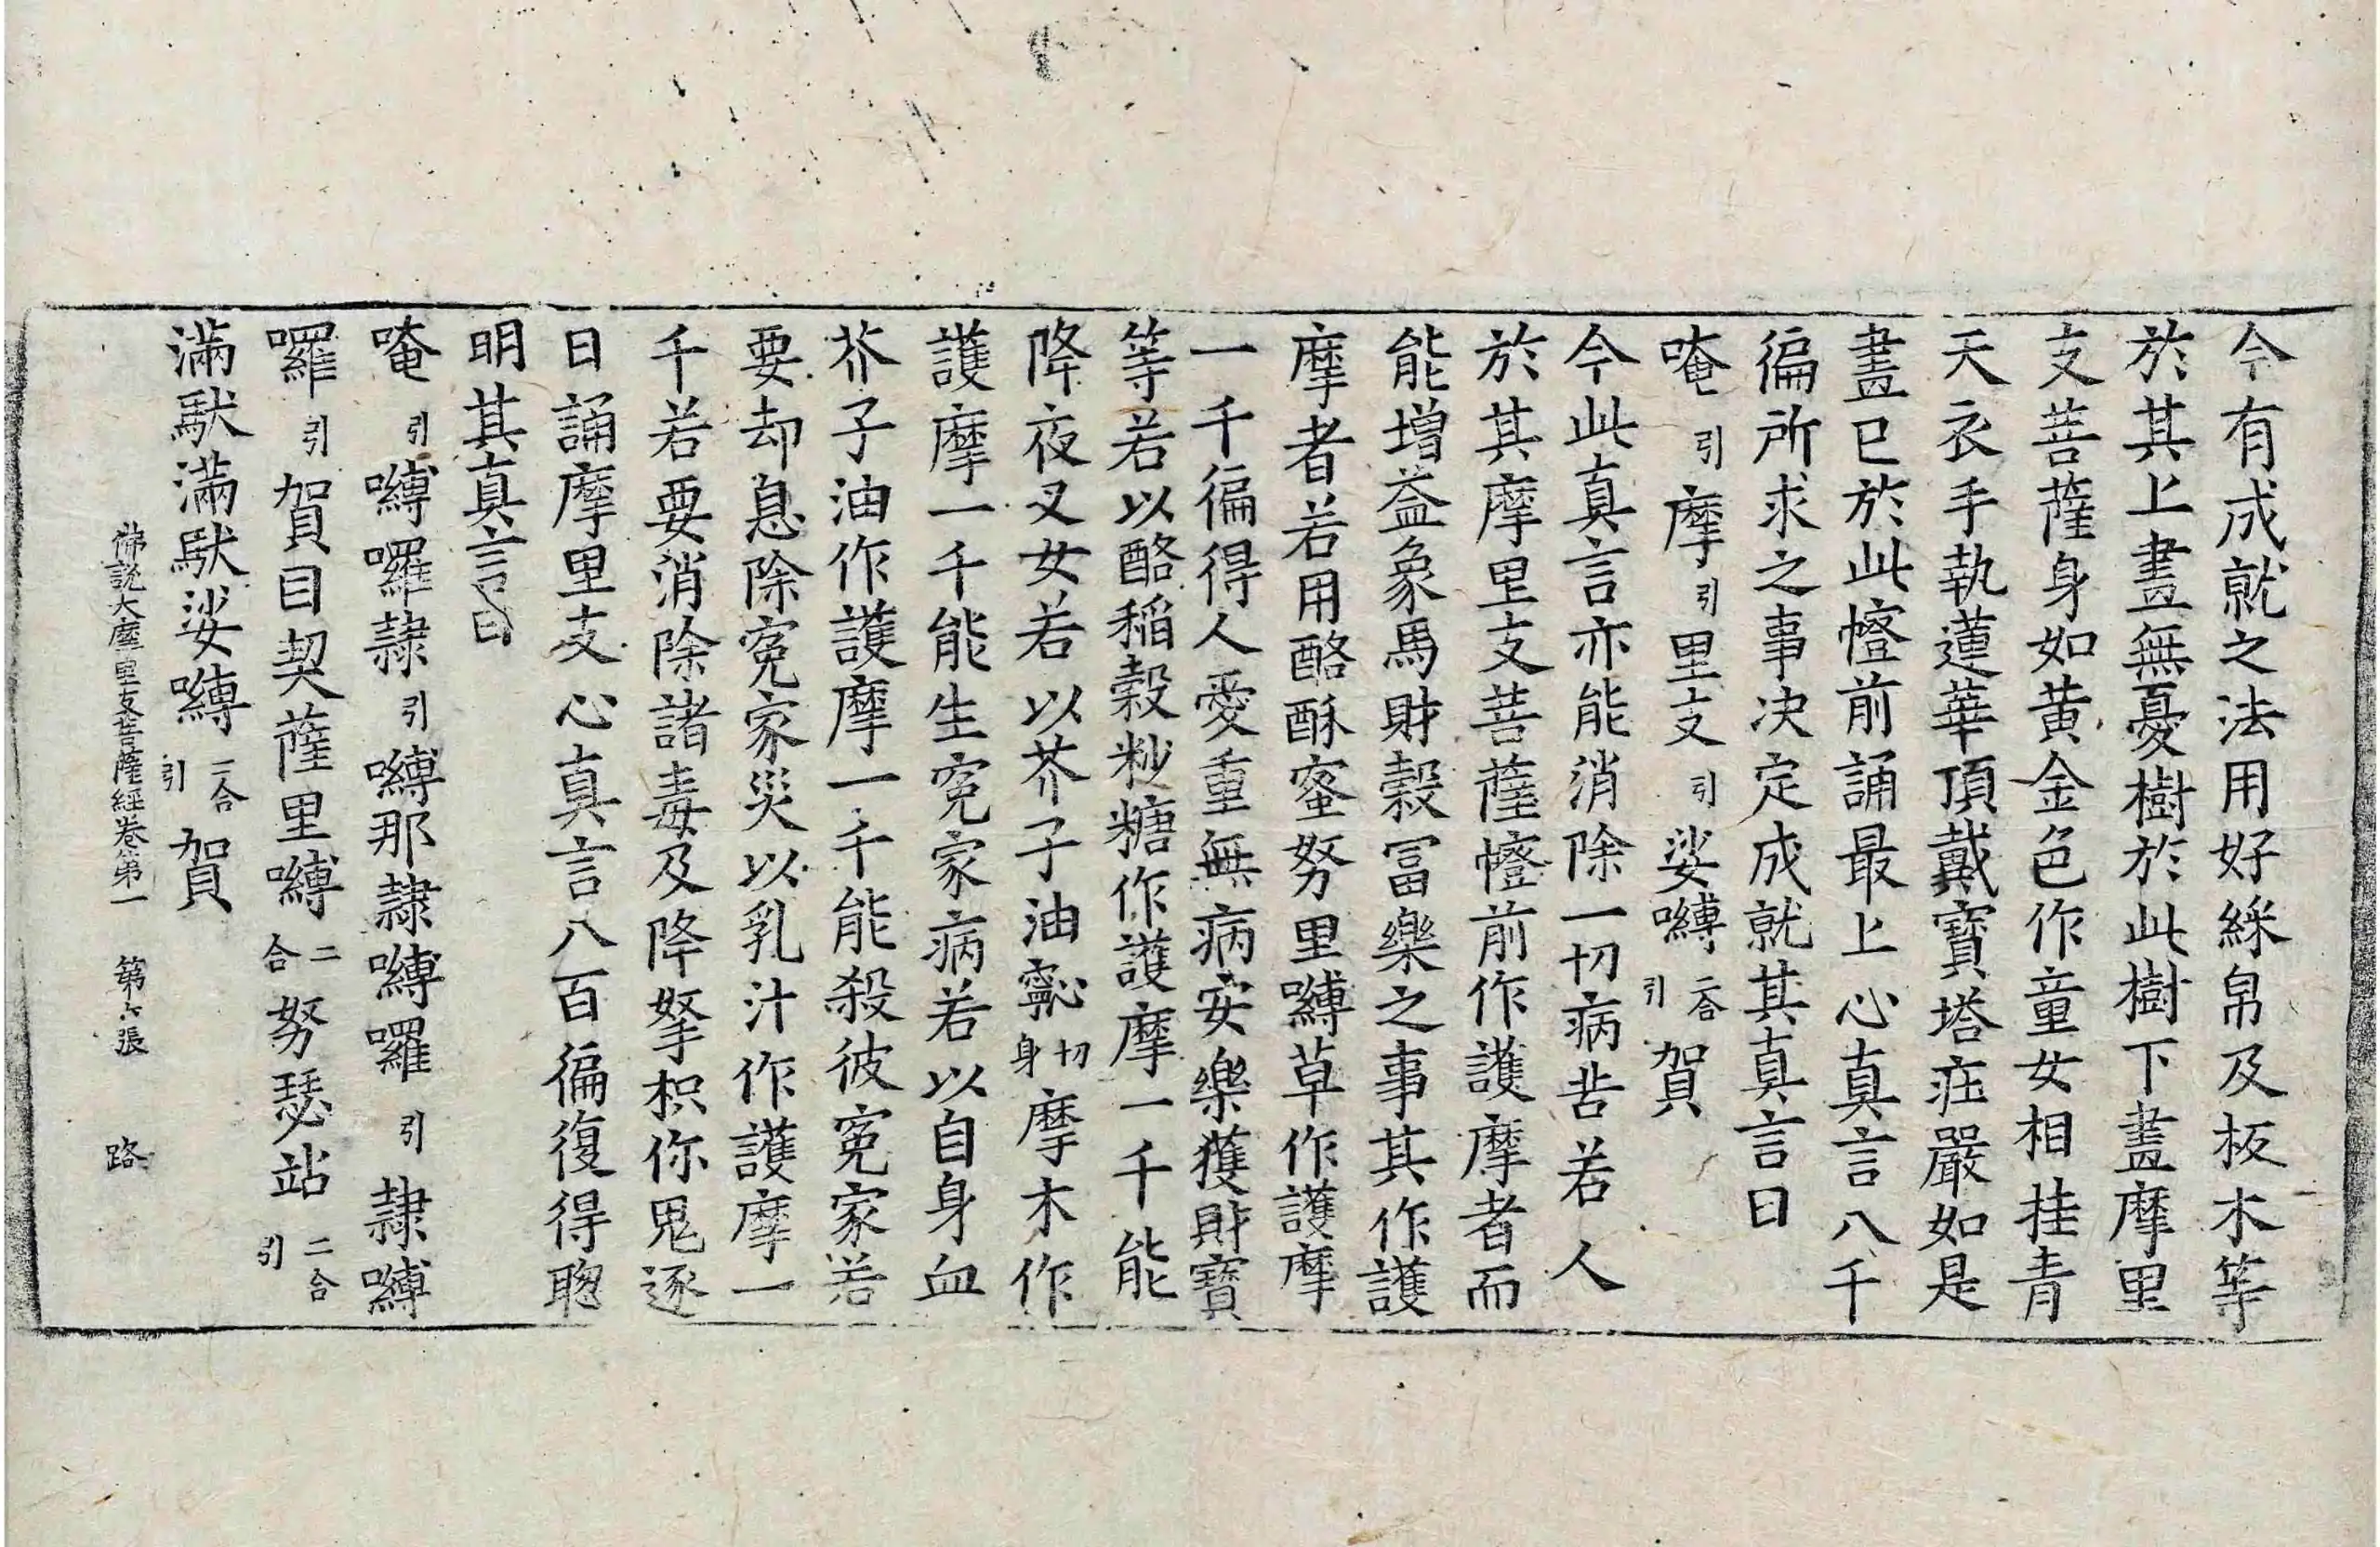 今有成就之法用好綵帛及板木等
於其上畫無憂樹於此樹下畫摩里
支菩薩身如黃金色作童女相挂青
天衣手執蓮華頂戴寶塔莊嚴如是
畫已於此㡧前誦最上心真言八千
徧所求之事决定成就其真言曰
唵引摩引里支引娑嚩二合引賀
今此真言亦能消除一切病苦若人
於其摩里支菩薩㡧前作護摩者而
能增益象馬財穀冨樂之事其作護
摩者若用酪酥蜜努里嚩草作護摩
一千徧得人愛重無病安樂獲財寶
等若以酪稻穀粆糖作護摩一千能
降夜叉女若以芥子油切身摩木作
護摩一千能生寃家病若以自身血
芥子油作護摩一千能殺彼寃家若
要却息除寃家災以乳汁作護摩一
千若要消除諸毒及降拏枳你鬼逐
日誦摩里支心真言八百徧復得聦
明其真言曰
唵引嚩囉隷引嚩那隷嚩囉引隷嚩
囉引賀目契薩里嚩二合努瑟站二合引
滿馱滿馱娑嚩二合引賀
佛說大摩里支菩薩經卷第一 第六張 路